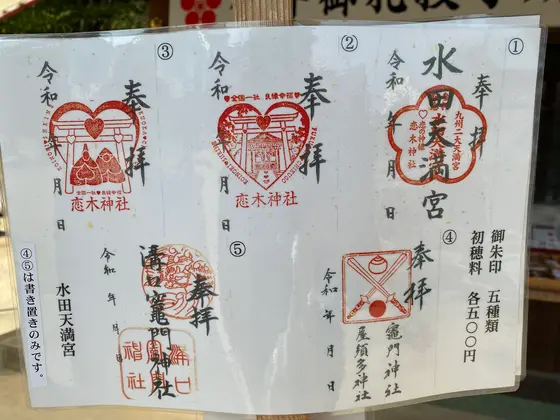 ①
奉拝
水田天満宮
令和 年 月 日
九州二大天満宮
恋の神様
恋木神社
②
奉拝
全国一社 良縁幸福
恋木神社
令和 年 月 日
③
奉拝
全国一社♥良縁幸福
恋木神社
令和 年 月 日
御朱印 五種類
初穂料 各五〇〇円
④
奉拝
竈門神社
屋須多神社
令和 年 月 日
⑤
奉拝
溝口竈門神社
令和 年 月 日
水田天満宮
④⑤は書き置きのみです。